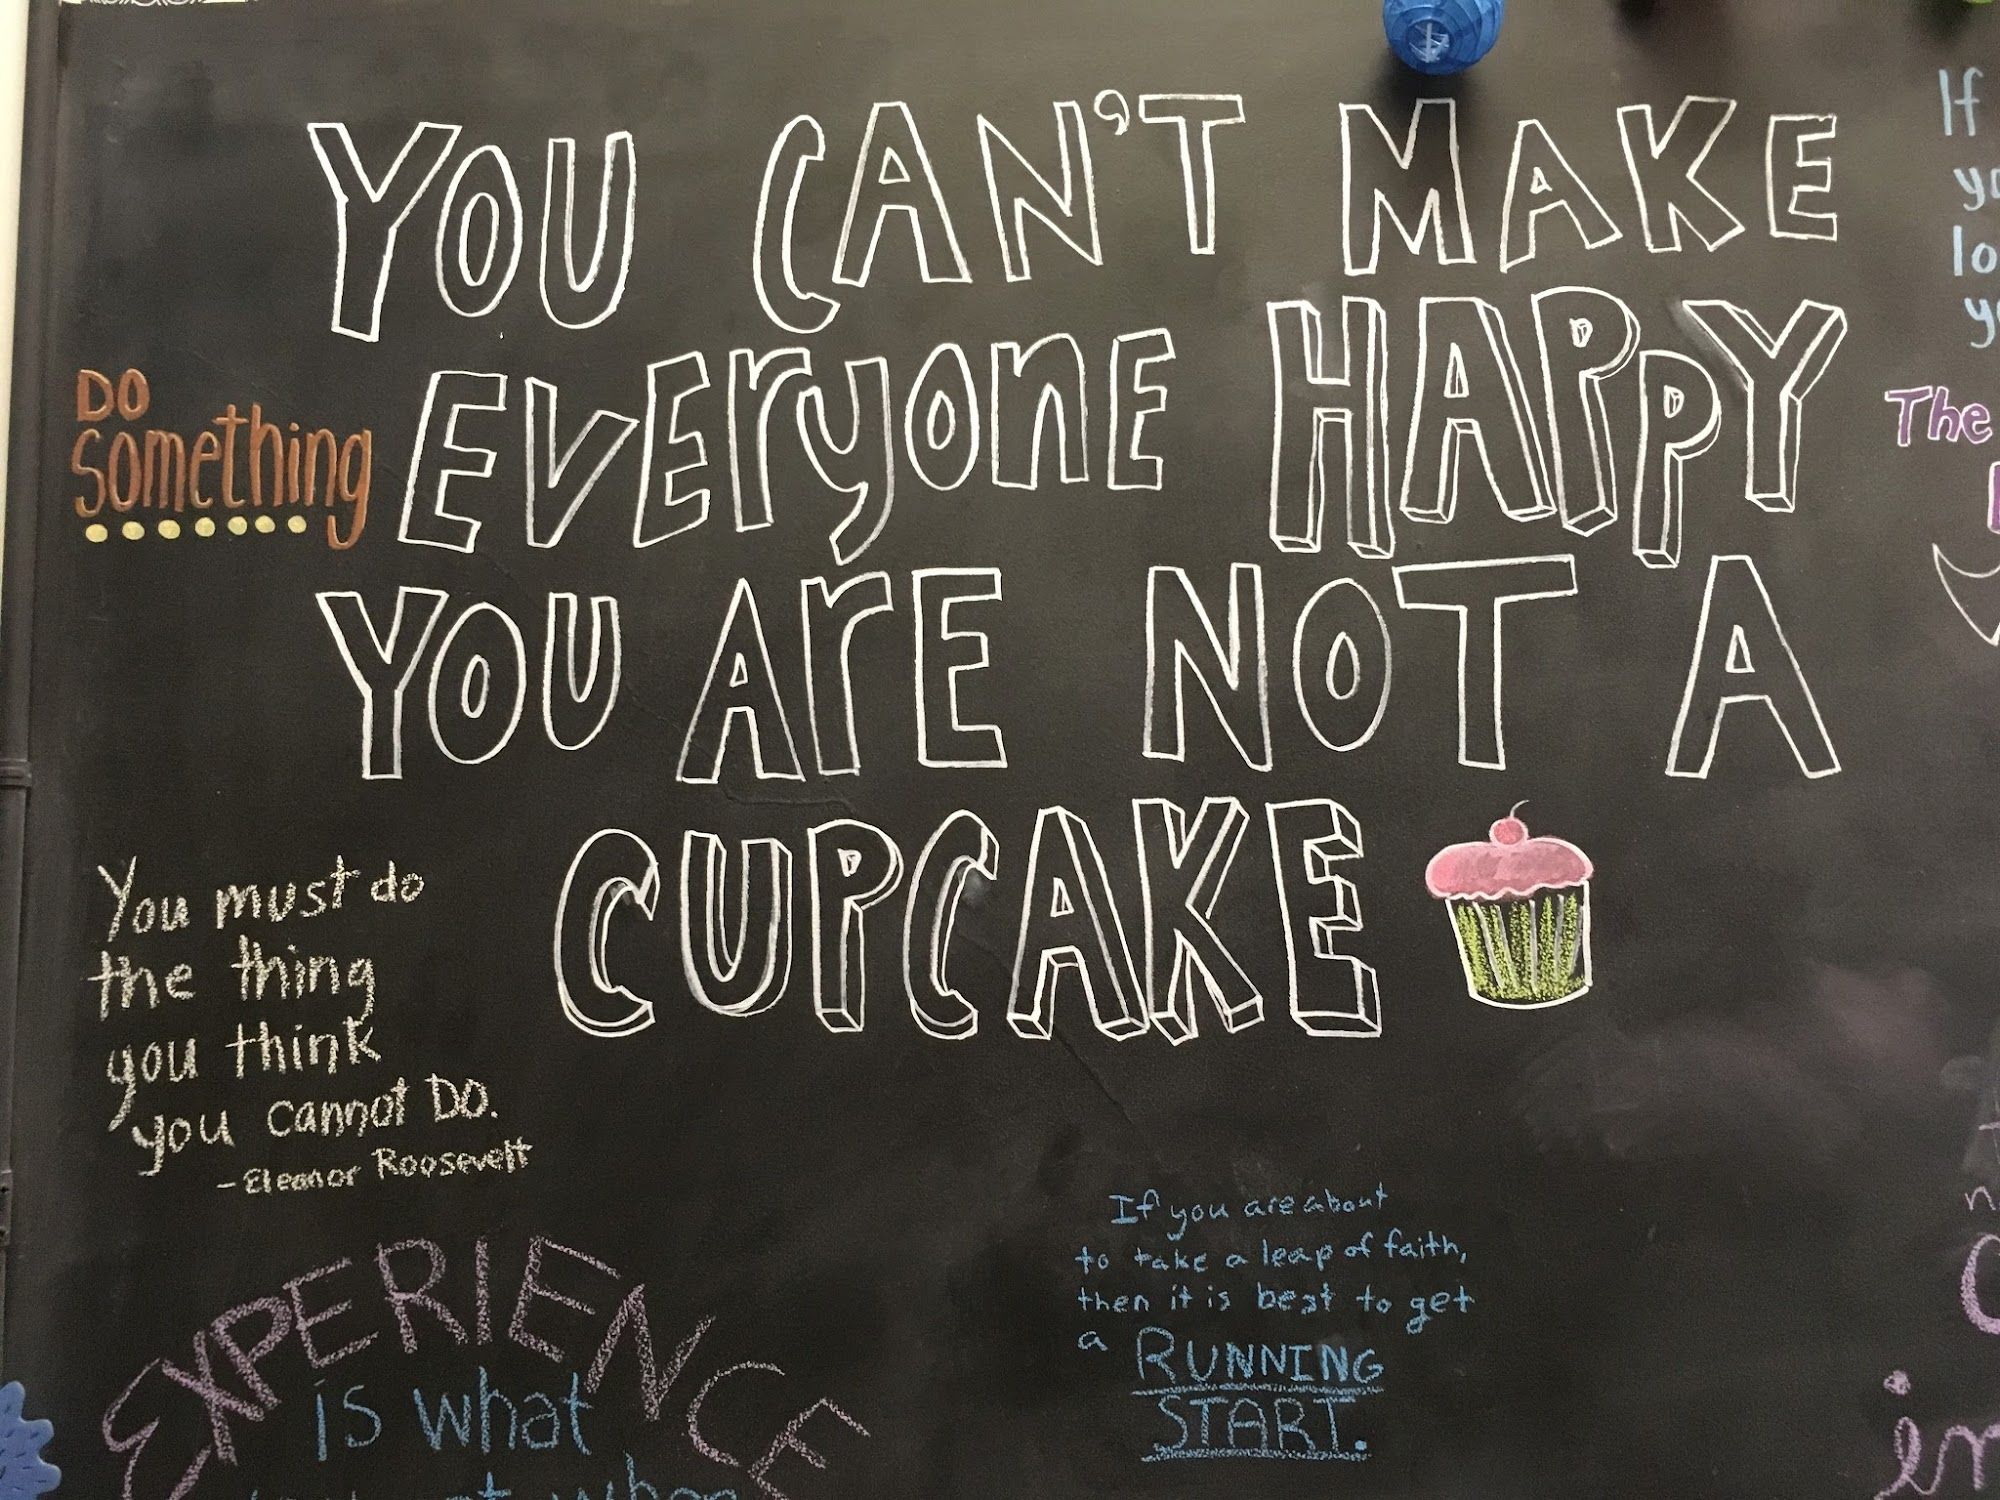 YOU CAN'T MAKE
EVEryonE HAPPY
YOU ArE NOT A
CUPCAKE
DO
something
You must do
the thing
you think
you cannot DO.
-Eleanor Roosevelt
EXPERIENCE
is what
If you are about
to take a leap of faith,
then it is best to get
a RUNNING
START.
If
The